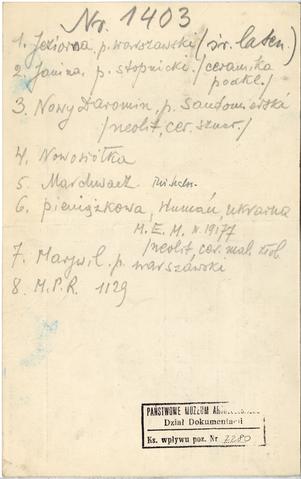 Nr. 1403
1. Jeziorna p. warszawski /śr. laten./
2. Janina p. stopnicki /ceramika
podkl./
3. Nowy Daromin, p. Sandomierski
/neolit, cer. sznur./
4. Nowosiółka
5. Marduwacz
6. Pieniążkowa, Humań, Ukraina
M.E.M. n. 19177
/neolit, cer. mal.
7. Marywil p. warszawski
8. M.P.R. 1129
PAŃSTWOWE MUZEUM
Dział Dokumentacji
Ks. wpływu poz. Nr 2280